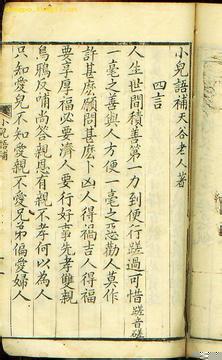 小兒語補天谷老人著
四言
人生世間積善第一力到便行蹉過可惜
一毫之善與人方便一毫之惡勸人莫作
許甚麽願問甚麽卜凶人得禍吉人得福
要享厚福必要濟人要行好事先孝雙親
烏鴉反哺尚答親恩有親不孝何以為人
只知愛兒不知愛親不愛兄弟偏愛婦人
小兒語補